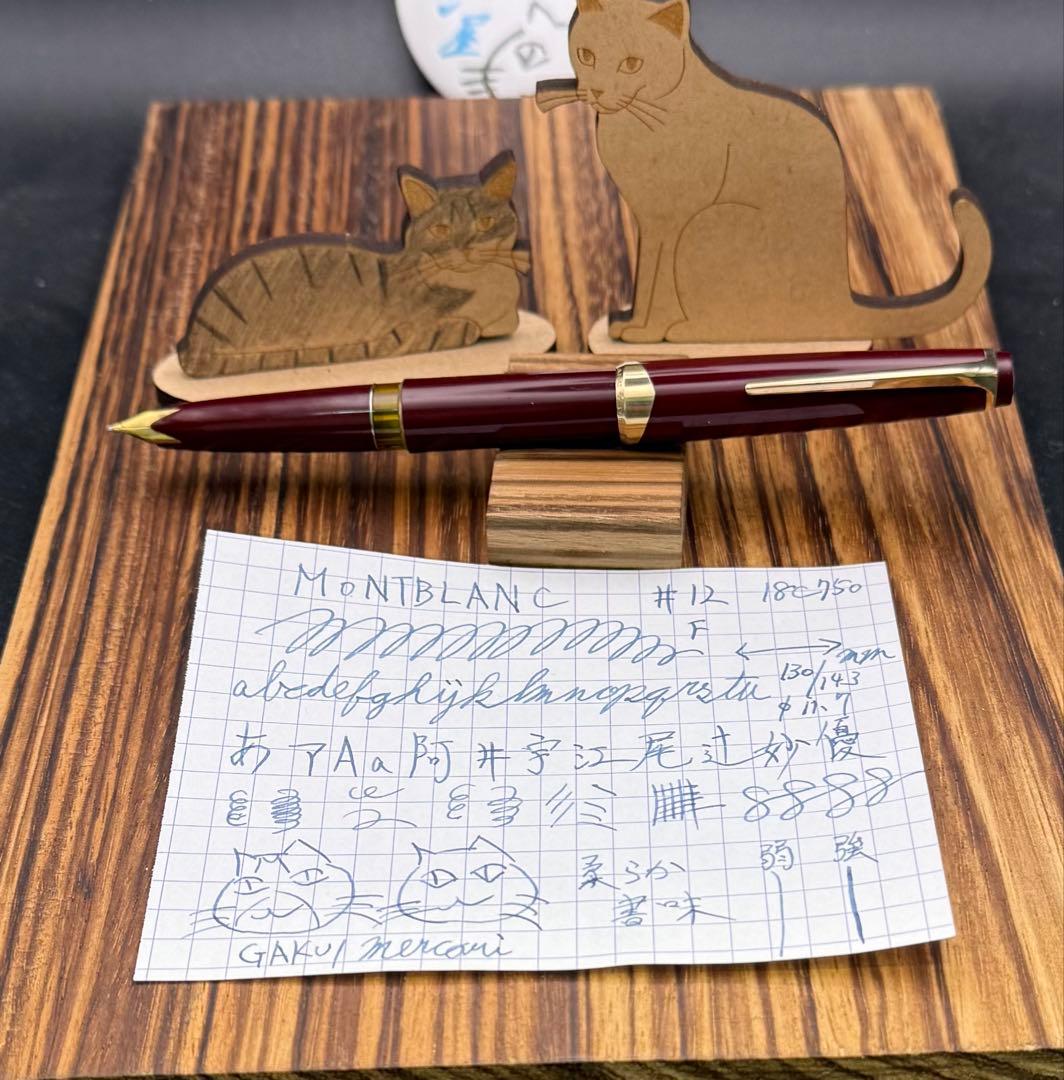 MONTBLANC #12 18C-750
F
mm
130/143
φ11.7
abcdefghijk lmnopqrstu
あ ア A a 阿 井 宇 江 尾 辻 妙 優
8888
柔らか 弱 強
書味
GAKU/mercari